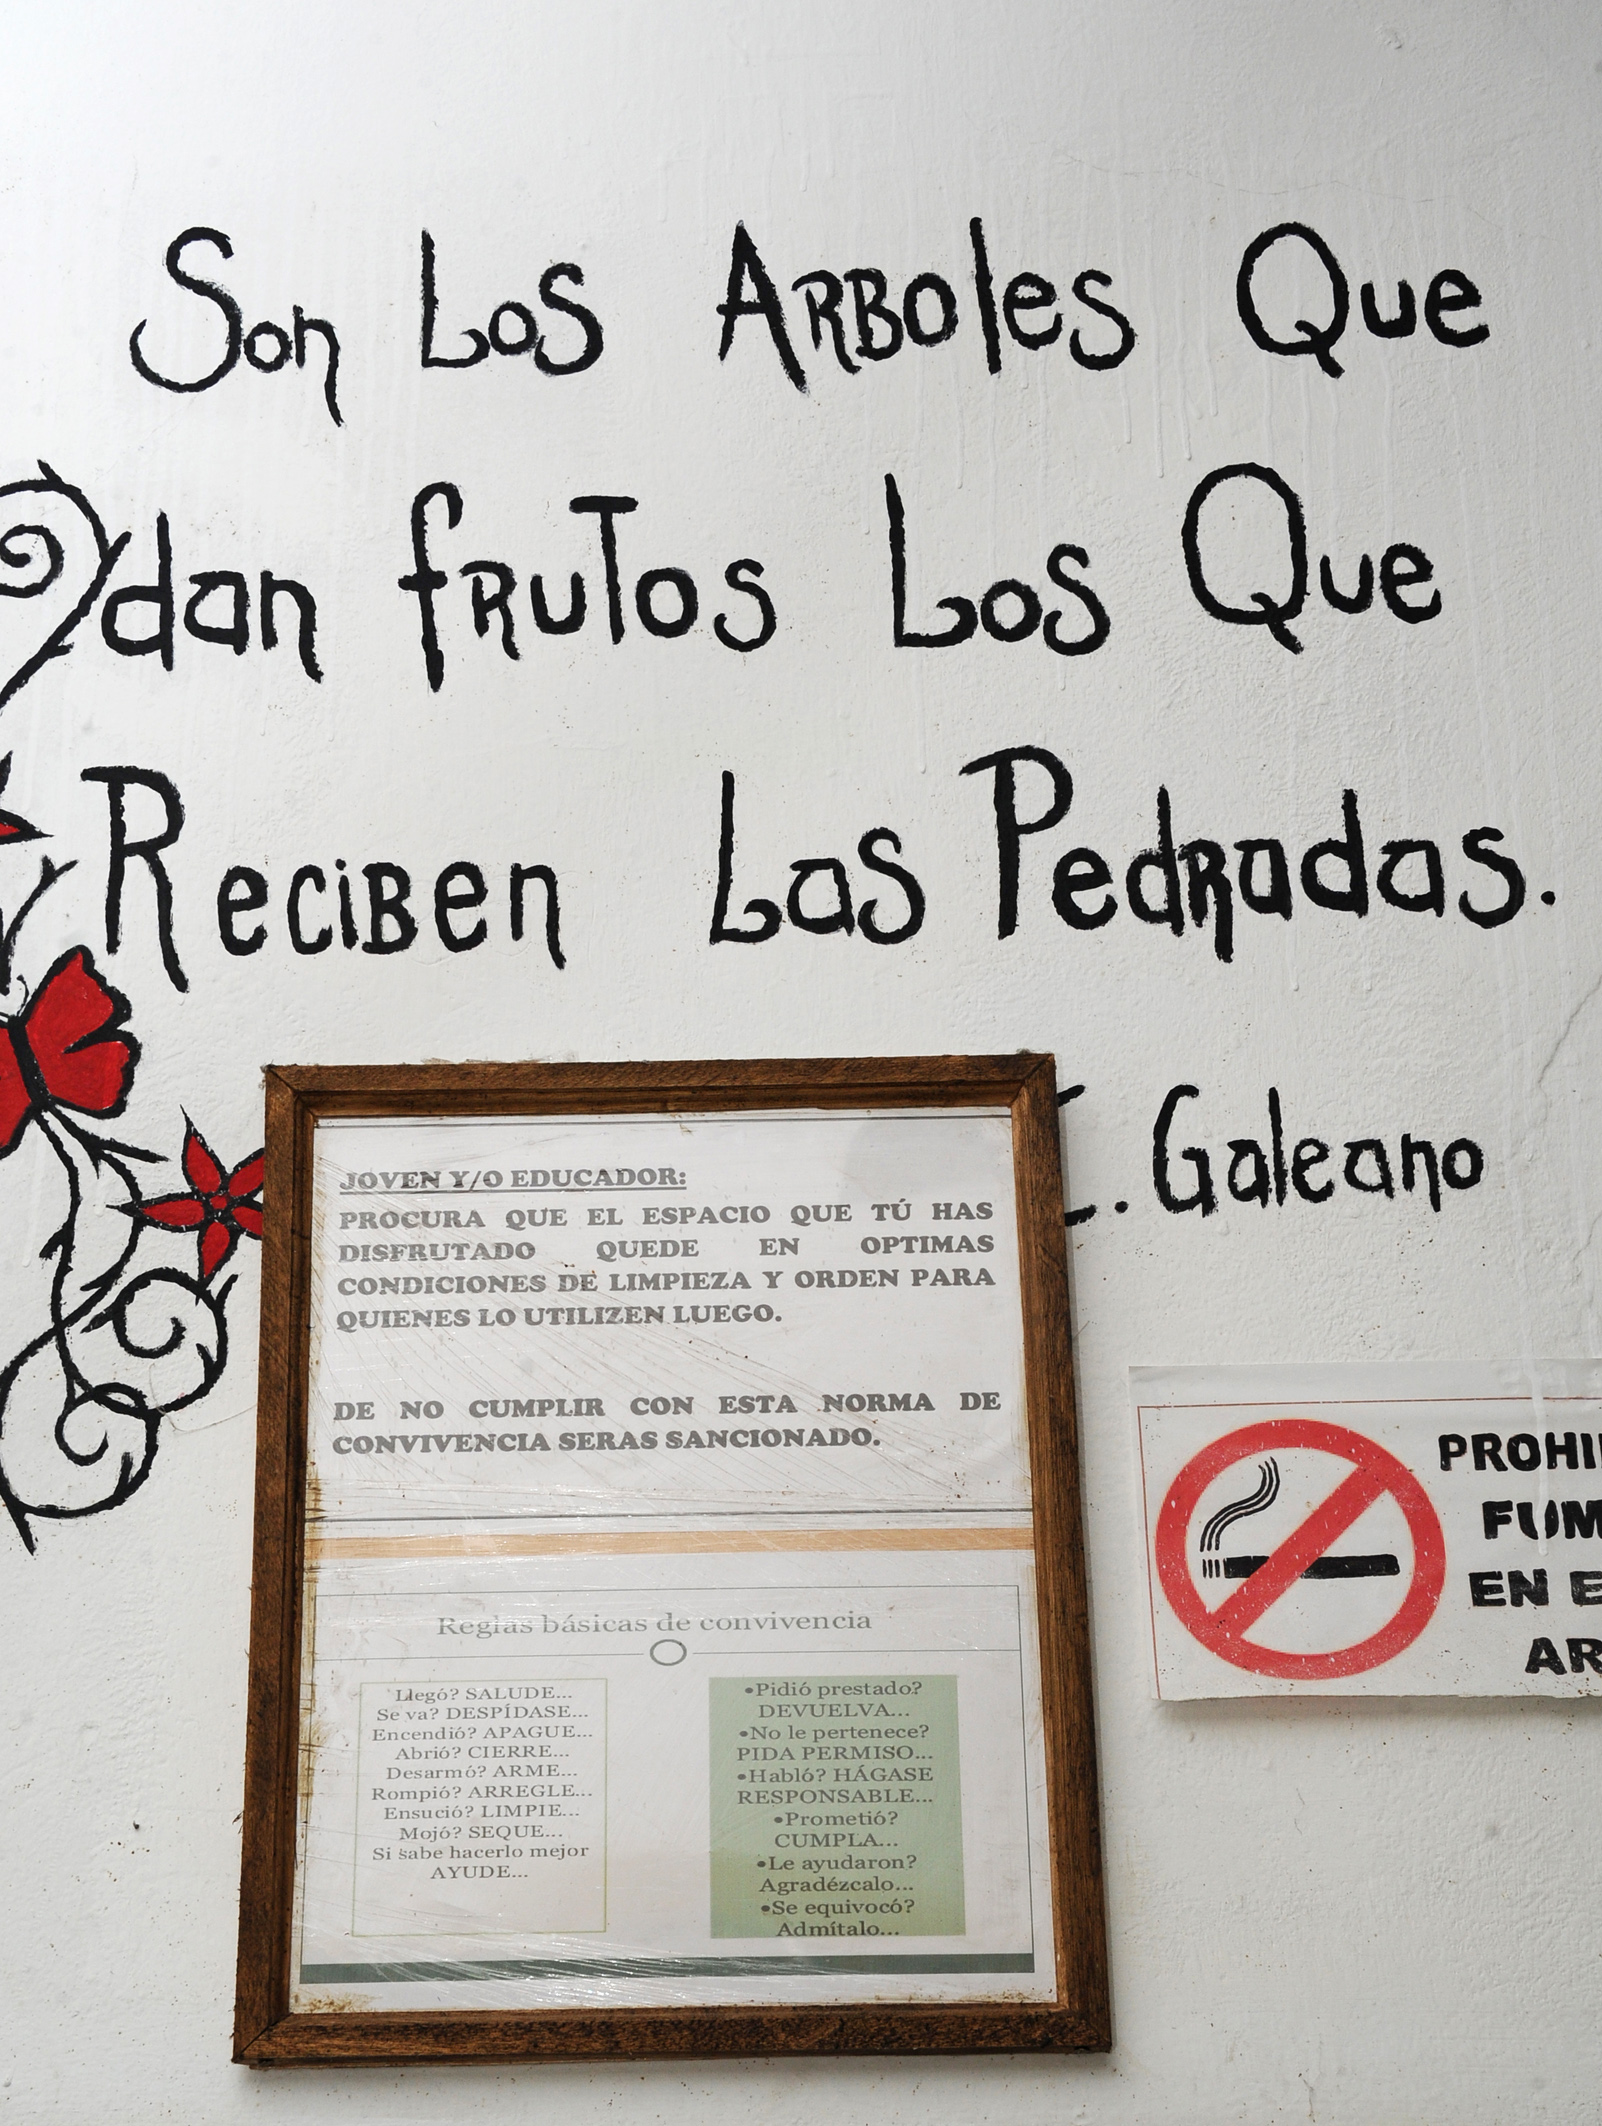 Son Los ARBoles Que
dan fRuTos Los Que
ReciBen Las PedRadas.
E. Galeano
JOVEN Y/O EDUCADOR:
PROCURA QUE EL ESPACIO QUE TÚ HAS
DISFRUTADO QUEDE EN OPTIMAS
CONDICIONES DE LIMPIEZA Y ORDEN PARA
QUIENES LO UTILIZEN LUEGO.
DE NO CUMPLIR CON ESTA NORMA DE
CONVIVENCIA SERAS SANCIONADO.
Reglas básicas de convivencia
Llegó? SALUDE...
Se va? DESPÍDASE...
Encendió? APAGUE...
Abrió? CIERRE...
Desarmó? ARME...
Rompió? ARREGLE...
Ensució? LIMPIE...
Mojó? SEQUE...
Si sabe hacerlo mejor
AYUDE...
•Pidió prestado?
DEVUELVA...
•No le pertenece?
PIDA PERMISO...
•Habló? HÁGASE
RESPONSABLE...
•Prometió?
CUMPLA...
•Le ayudaron?
Agradézcalo...
•Se equivocó?
Admítalo...
PROHI
FUM
EN E
AR